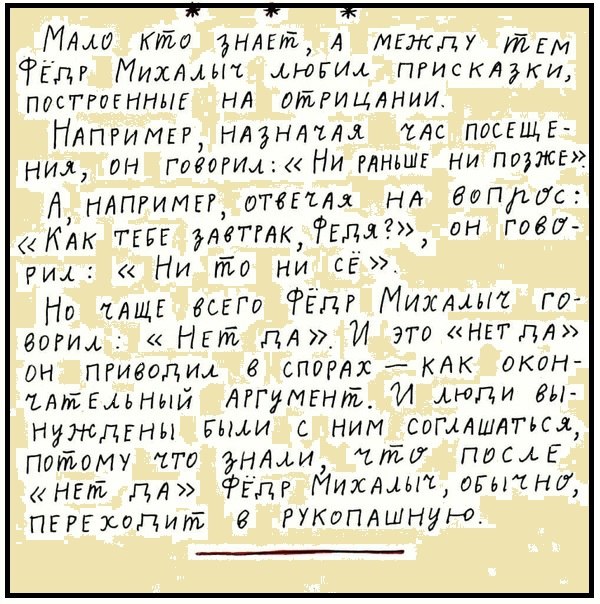 * * *
Мало кто знает, а между тем
Фёдр Михалыч любил присказки,
построенные на отрицании.
Например, назначая час посеще-
ния, он говорил: «Ни раньше ни позже».
А, например, отвечая на вопрос:
«Как тебе завтрак, Федя?», он гово-
рил: «Ни то ни сё».
Но чаще всего Фёдр Михалыч го-
ворил: «Нет да». И это «нет да»
он приводил в спорах — как окон-
чательный аргумент. И люди вы-
нуждены были с ним соглашаться,
потому что знали, что после
«нет да» Фёдр Михалыч, обычно,
переходит в рукопашную.